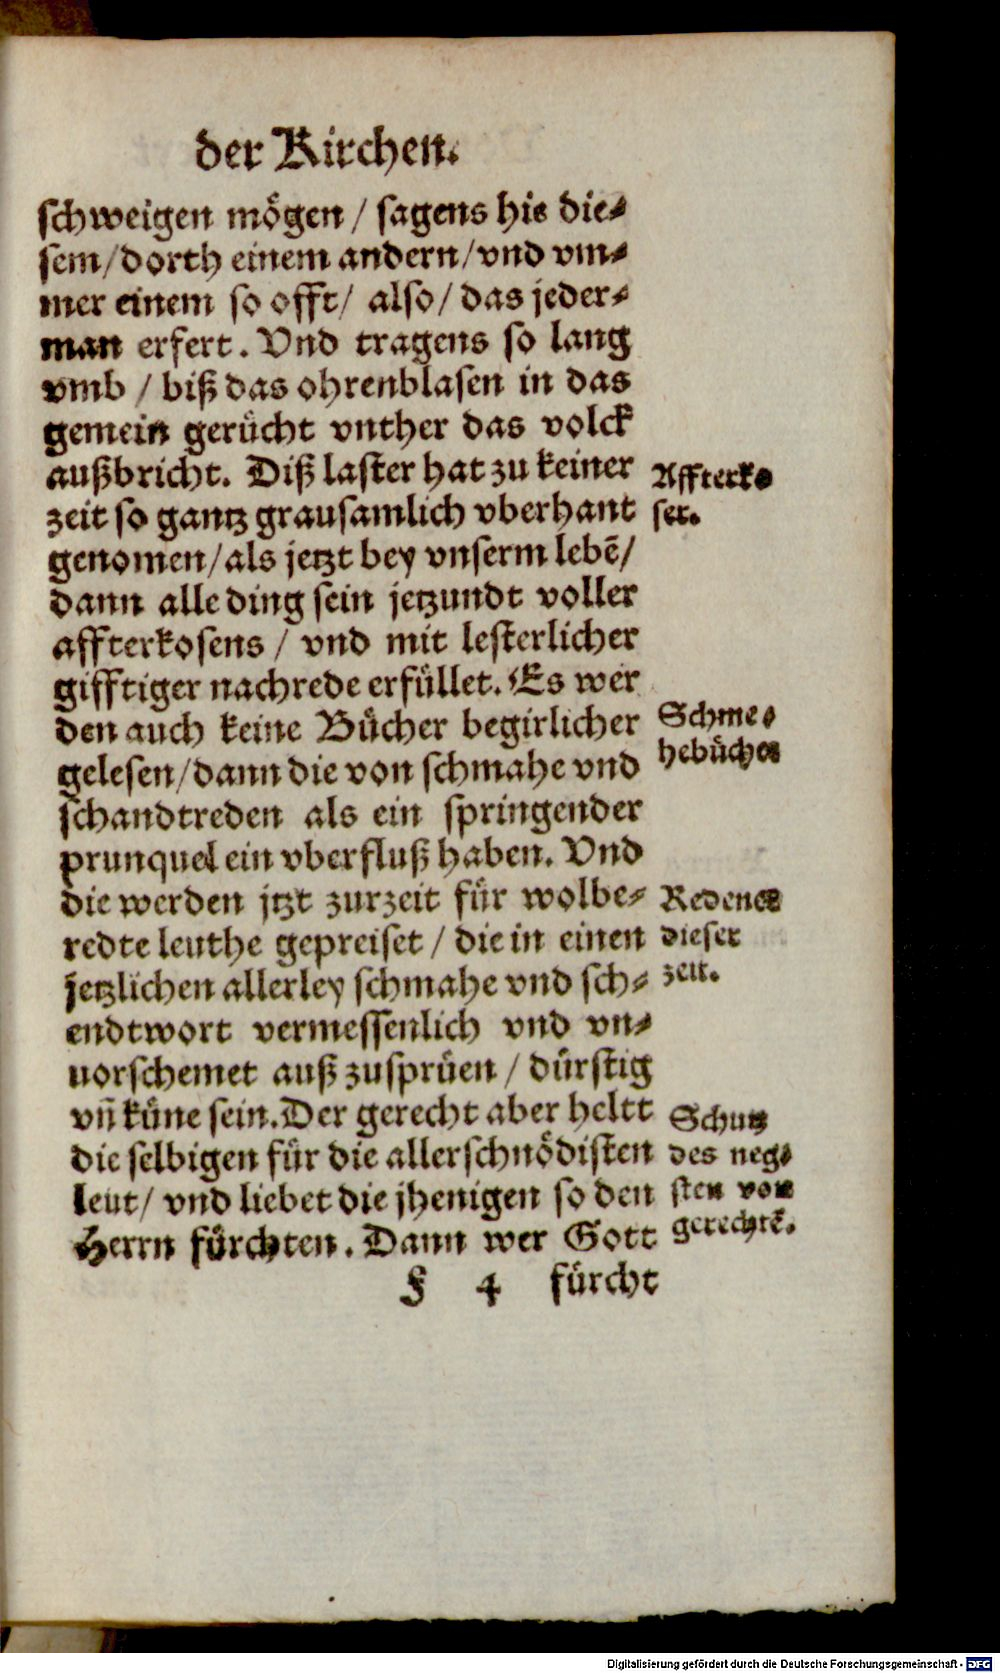 der Kirchen.
schweigen mögen / sagens hie die-
sem/dorth einem andern/vnd vm-
mer einem so offt/ also/ das jeder-
man erfert. Vnd tragens so lang
vmb / biß das ohrenblasen in das
gemein gerücht vnther das volck
außbricht. Diß laster hat zu keiner
zeit so gantz grausamlich vberhant
genomen/als jetzt bey vnserm lebē/
dann alle ding sein jetzundt voller
affterkosens / vnd mit lesterlicher
gifftiger nachrede erfüllet. Es wer
den auch keine Bücher begirlicher
gelesen/dann die von schmahe vnd
schandtreden als ein springender
prunquel ein vberfluß haben. Vnd
die werden jtzt zurzeit für wolbe-
redte leuthe gepreiset / die in einen
jetzlichen allerley schmahe vnd sch-
endtwort vermessenlich vnd vn-
uorschemet auß zusprüen / dürstig
vñ küne sein. Der gerecht aber heltt
die selbigen für die allerschnödisten
leut/ vnd liebet die jhenigen so den
Herrn fürchten. Dann wer Gott
F 4 fürcht
Affterko
ser.
Schme-
hebücher
Redener
dieser
zeit.
Schutz
des neg-
sten von
gerechtē.
Digitalisierung gefördert durch die Deutsche Forschungsgemeinschaft - DFG